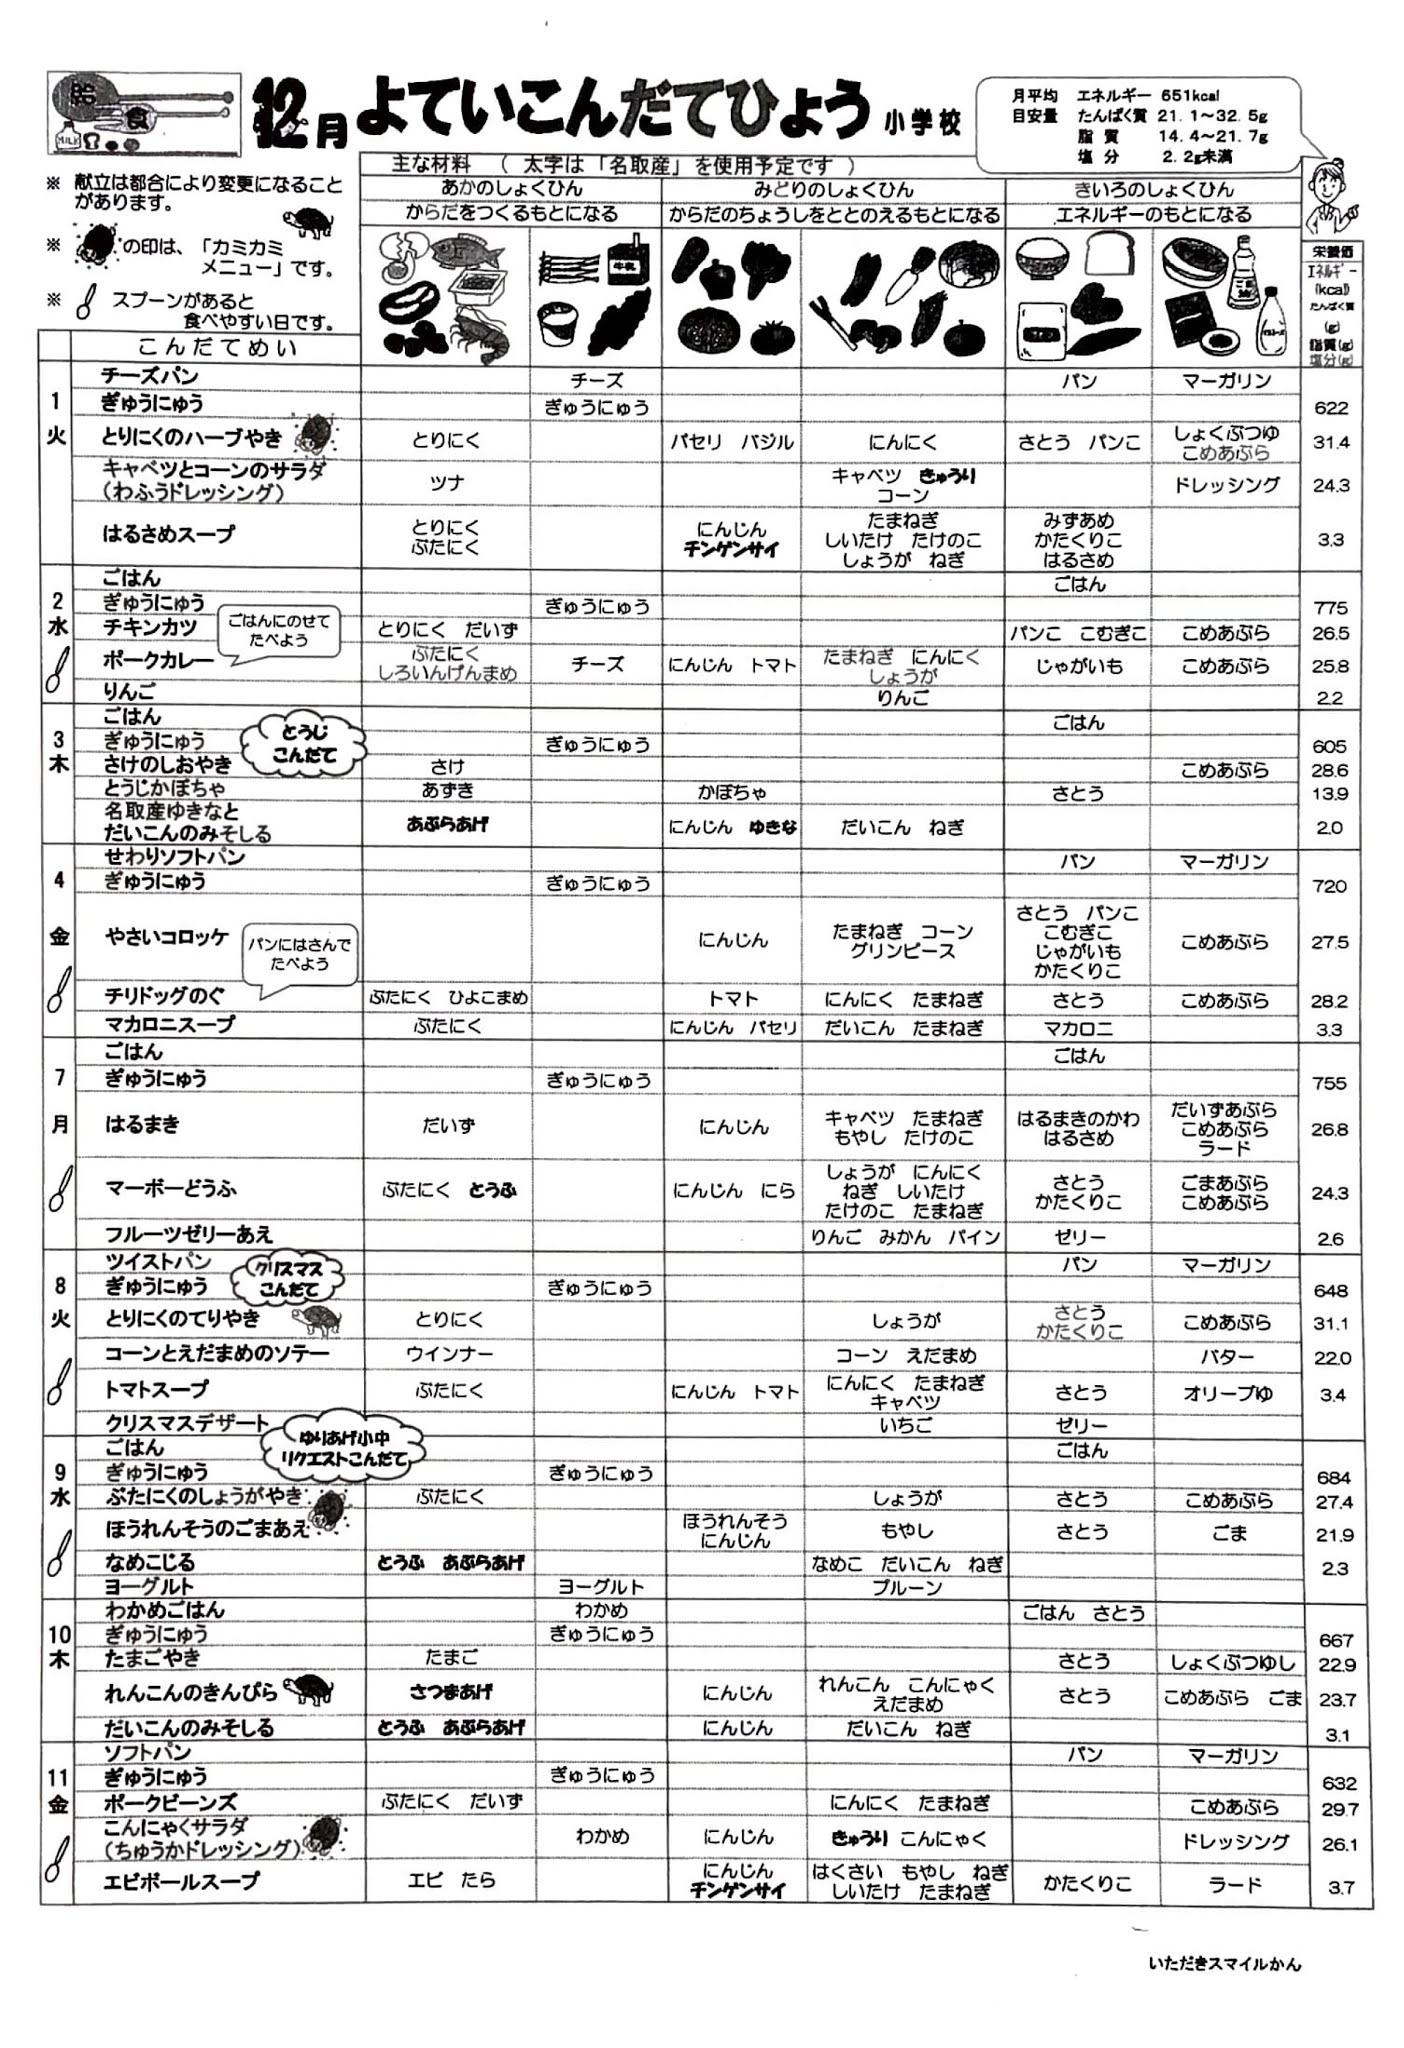 給
食
MILK
12月 よていこんだてひょう 小学校
月平均 エネルギー 651kcal
目安量 たんぱく質 21.1～32.5g
脂 質 14.4～21.7g
塩 分 2.2g未満
※ 献立は都合により変更になること
があります。
※ の印は、「カミカミ
メニュー」です。
※ スプーンがあると
食べやすい日です。
主な材料 （ 太字は「名取産」を使用予定です ）
あかのしょくひん みどりのしょくひん きいろのしょくひん
からだをつくるもとになる からだのちょうしをととのえるもとになる エネルギーのもとになる
牛乳
こんだてめい
栄養価
エネルギー
(kcal)
たんぱく質
(g)
脂質(g)
塩分(g)
1 火
チーズパン チーズ パン マーガリン
ぎゅうにゅう ぎゅうにゅう 622
とりにくのハーブやき とりにく パセリ バジル にんにく さとう パンこ しょくぶつゆ こめあぶら 31.4
キャベツとコーンのサラダ
（わふうドレッシング） ツナ キャベツ きゅうり コーン ドレッシング 24.3
はるさめスープ とりにく ぶたにく にんじん チンゲンサイ たまねぎ しいたけ たけのこ しょうが ねぎ みずあめ かたくりこ はるさめ 3.3
2 水
ごはん ごはん
ぎゅうにゅう ぎゅうにゅう 775
チキンカツ とりにく だいず パンこ こむぎこ こめあぶら 26.5
ごはんにのせて
たべよう
ポークカレー ぶたにく しろいんげんまめ チーズ にんじん トマト たまねぎ にんにく しょうが じゃがいも こめあぶら 25.8
りんご りんご 2.2
3 木
ごはん ごはん
とうじ
こんだて
ぎゅうにゅう ぎゅうにゅう 605
さけのしおやき さけ こめあぶら 28.6
とうじかぼちゃ あずき かぼちゃ さとう 13.9
名取産ゆきなと
だいこんのみそしる あぶらあげ にんじん ゆきな だいこん ねぎ 2.0
4 金
せわりソフトパン パン マーガリン
ぎゅうにゅう ぎゅうにゅう 720
やさいコロッケ にんじん たまねぎ コーン グリンピース さとう パンこ こむぎこ じゃがいも かたくりこ こめあぶら 27.5
パンにはさんで
たべよう
チリドッグのぐ ぶたにく ひよこまめ トマト にんにく たまねぎ さとう こめあぶら 28.2
マカロニスープ ぶたにく にんじん パセリ だいこん たまねぎ マカロニ 3.3
7 月
ごはん ごはん
ぎゅうにゅう ぎゅうにゅう 755
はるまき だいず にんじん キャベツ たまねぎ もやし たけのこ はるまきのかわ はるさめ だいずあぶら こめあぶら ラード 26.8
マーボーどうふ ぶたにく とうふ にんじん にら しょうが にんにく ねぎ しいたけ たけのこ たまねぎ さとう かたくりこ ごまあぶら こめあぶら 24.3
フルーツゼリーあえ りんご みかん パイン ゼリー 2.6
8 火
ツイストパン パン マーガリン
クリスマス
こんだて
ぎゅうにゅう ぎゅうにゅう 648
とりにくのてりやき とりにく しょうが さとう かたくりこ こめあぶら 31.1
コーンとえだまめのソテー ウインナー コーン えだまめ バター 22.0
トマトスープ ぶたにく にんじん トマト にんにく たまねぎ キャベツ さとう オリーブゆ 3.4
クリスマスデザート いちご ゼリー
9 水
ゆりあげ小中
リクエストこんだて
ごはん ごはん
ぎゅうにゅう ぎゅうにゅう 684
ぶたにくのしょうがやき ぶたにく しょうが さとう こめあぶら 27.4
ほうれんそうのごまあえ ほうれんそう にんじん もやし さとう ごま 21.9
なめこじる とうふ あぶらあげ なめこ だいこん ねぎ 2.3
ヨーグルト ヨーグルト プルーン
10 木
わかめごはん わかめ ごはん さとう
ぎゅうにゅう ぎゅうにゅう 667
たまごやき たまご さとう しょくぶつゆし 22.9
れんこんのきんぴら さつまあげ にんじん れんこん こんにゃく えだまめ さとう こめあぶら ごま 23.7
だいこんのみそしる とうふ あぶらあげ にんじん だいこん ねぎ 3.1
11 金
ソフトパン パン マーガリン
ぎゅうにゅう ぎゅうにゅう 632
ポークビーンズ ぶたにく だいず にんにく たまねぎ こめあぶら 29.7
こんにゃくサラダ
（ちゅうかドレッシング） わかめ にんじん きゅうり こんにゃく ドレッシング 26.1
エビボールスープ エビ たら にんじん チンゲンサイ はくさい もやし ねぎ しいたけ たまねぎ かたくりこ ラード 3.7
いただきスマイルかん